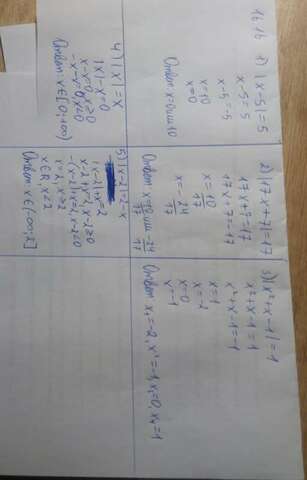 1) |x-5|=5
x-5=5
x-5=-5
x=10
x=0
Ответ x=0 или 10
2) |17x+7|=17
17x+7=17
17x+7=-17
x=10/17
x=-24/17
Ответ x=10/17 или -24/17
3) |x²+x-1|=1
x²+x-1=1
x²+x-1=-1
x=1
x=-2
x=0
x=-1
Ответ x₁=-2, x₂=-1, x₃=0, x₄=1
4) |x|=x
|x|-x=0
x-x=0, x≥0
-x-x=0, x<0
Ответ x∈[0;+∞)
5) |x-2|=2-x
|x-2|+x=2
x-2+x=2, x-2≥0
-(x-2)+x=2, x-2<0
x=2, x≥2
x∈R, x<2
Ответ x∈(-∞;2]